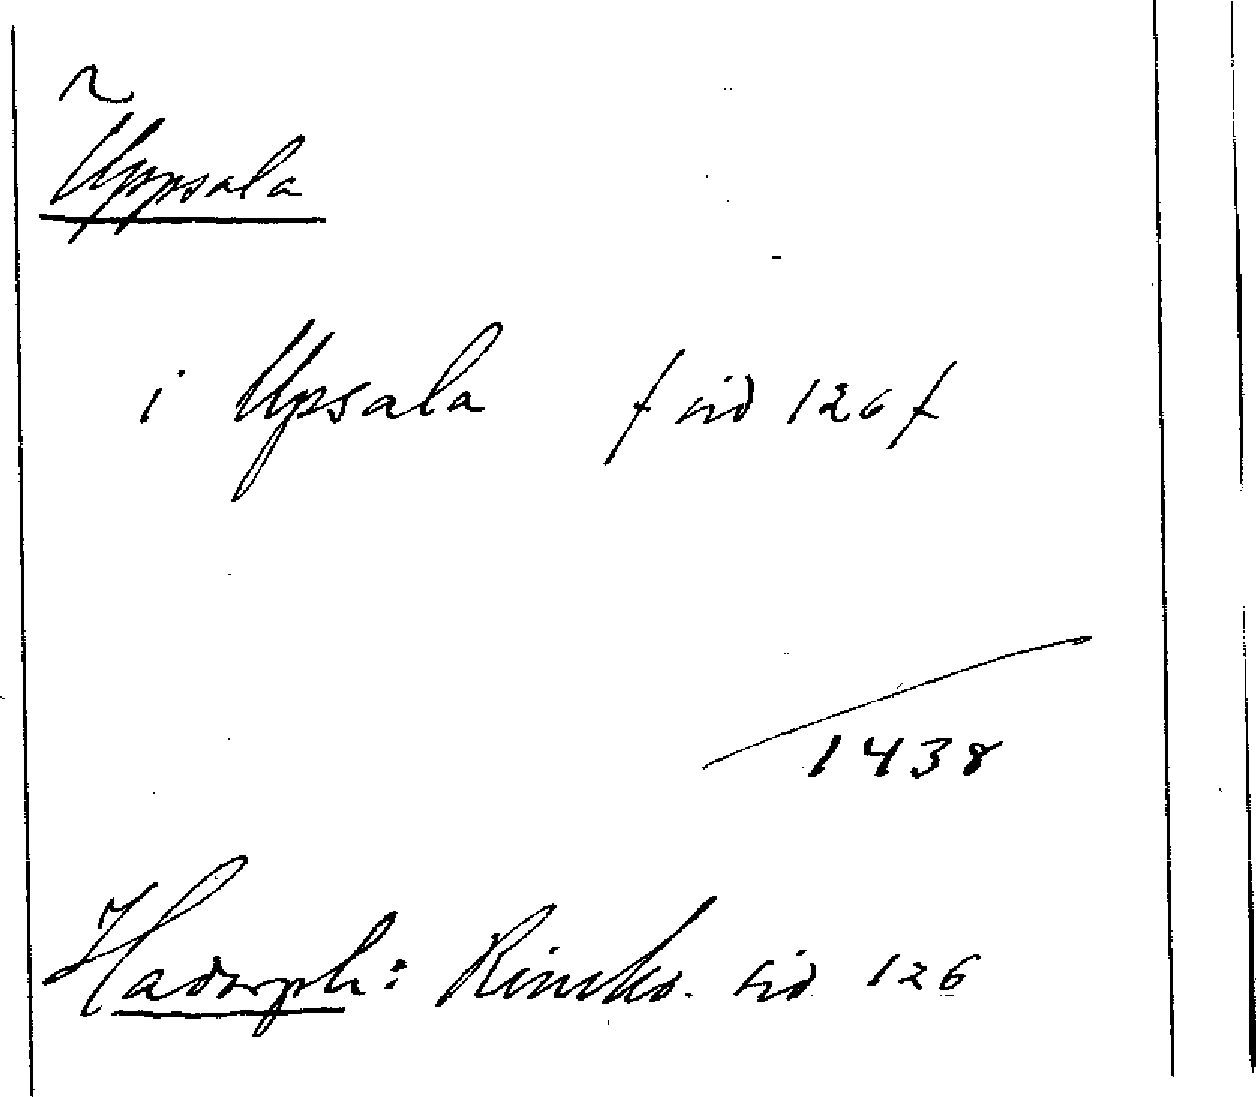 ~
Uppsala
i Upsala / sid 126 /
1438
Hadorph: Rimkr. sid 126